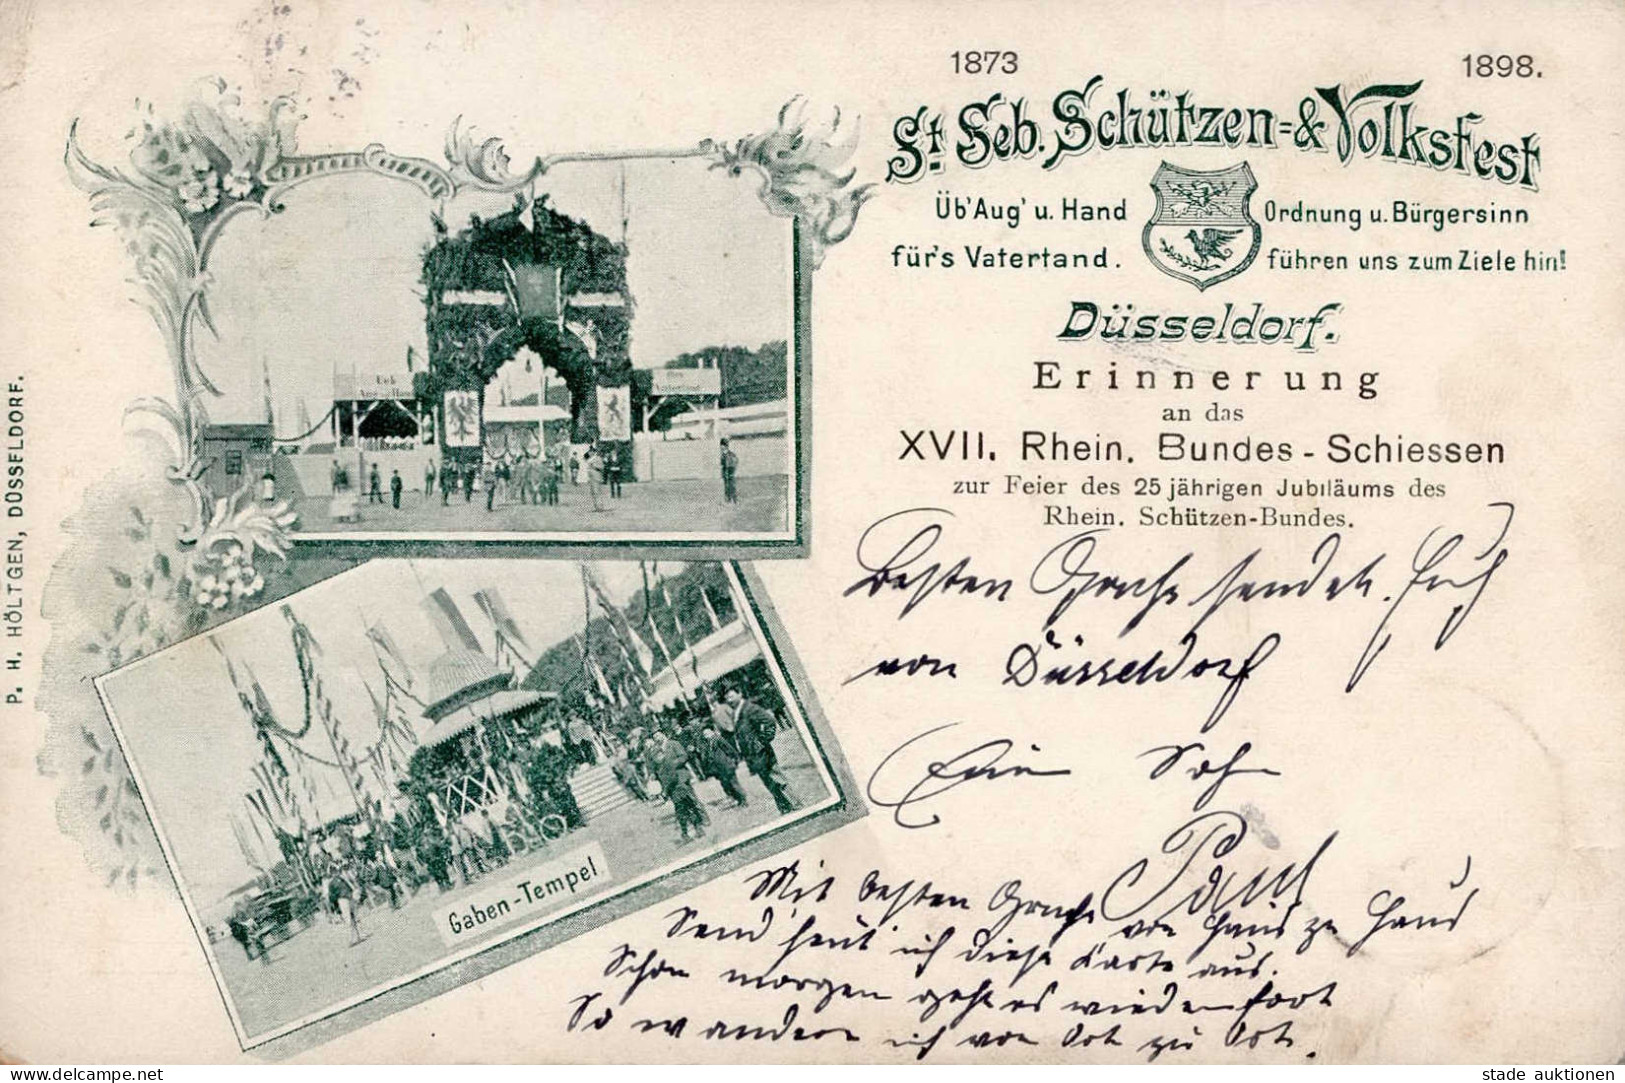 1873 1898.
St. Seb. Schützen=& Volksfest
Üb' Aug' u. Hand Ordnung u. Bürgersinn
für's Vatertand. führen uns zum Ziele hin!
Düsseldorf.
Erinnerung
an das
XVII. Rhein. Bundes-Schiessen
zur Feier des 25 jährigen Jubiläums des
Rhein. Schützen-Bundes.
Besten Grüße sendet Euch
von Düsseldorf
Euer Sohn
Paul
Mit besten Grüße von Haus zu Haus
Send' heut' ich diese Karte aus.
Schon morgen geht es wieder fort
So wandere ich von Ort zu Ort.
Gaben-Tempel
P. H. HÖLTGEN, DÜSSELDORF.
delcampe.net
stade auktionen